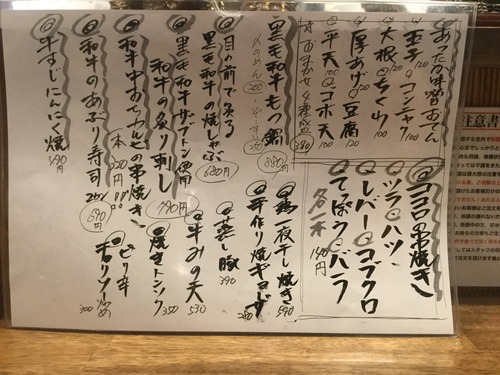 あったか味噌おでん
玉子 120 コンニャク 100
大根 120 ちくわ 100
厚あげ 120 豆腐 120
平天 100 ゴボ天 100
おまかせ4種盛 380
ココロの串焼き
ツラ ハツ
レバー コブクロ
てっぽう バラ
各一本 140円
黒毛和牛もつ鍋 880円
〆のめん 200
目の前で炙る
黒毛和牛の焼しゃぶ 680円
黒毛和牛ザブトン使用
和牛の炙り刺し 790円
和牛中おちカルビの串焼き
一本 350円
和牛のあぶり寿司 2カン 690円
牛すじにんにく焼 490円
鶏一夜干し焼き 590
手作り焼ギョーザ 280
蒸し豚 390
牛みの天 530
焼きトンソク 350
ピリ辛
チョリソ炒め 300
注意書